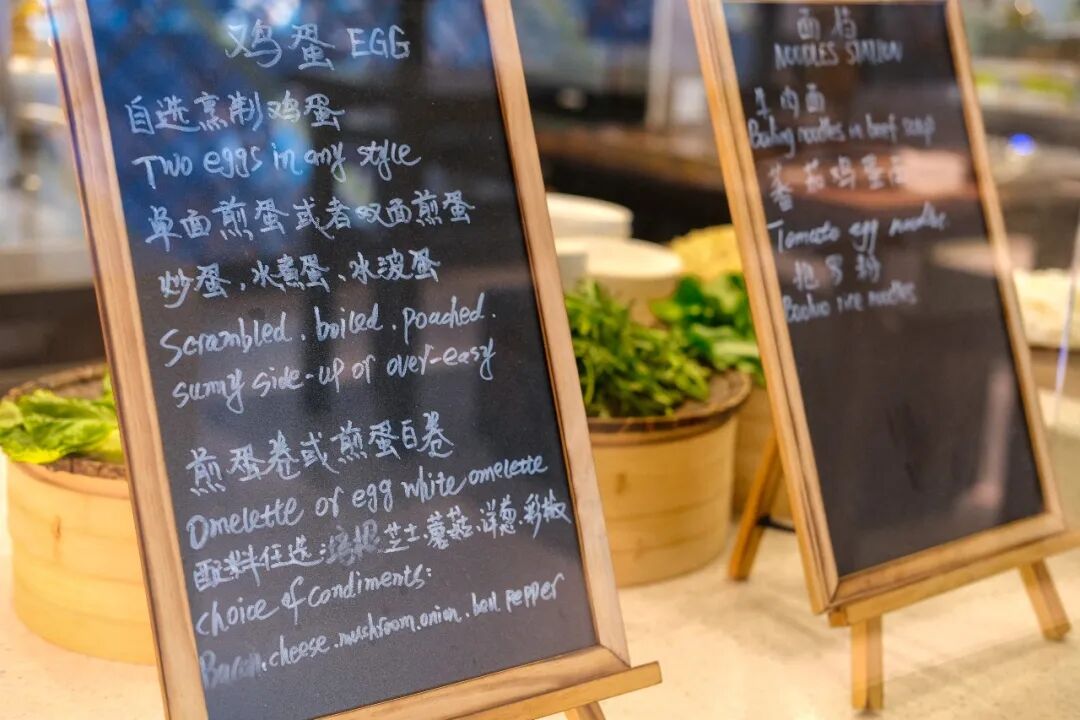 鸡蛋 EGG
自选烹制鸡蛋
Two eggs in any style
单面煎蛋或者双面煎蛋
炒蛋、水煮蛋、水波蛋
Scrambled. boiled. poached.
sunny side-up or over-easy
煎蛋卷或煎蛋白卷
Omelette or egg white omelette
配料任选:培根芝士、蘑菇、洋葱、彩椒
choice of Condiments:
Bacon, cheese. mushroom. onion. bell pepper
面档
NOODLES STATION
牛肉面
noodles in beef soup
番茄鸡蛋面
Tomato egg noodle
rice noodles